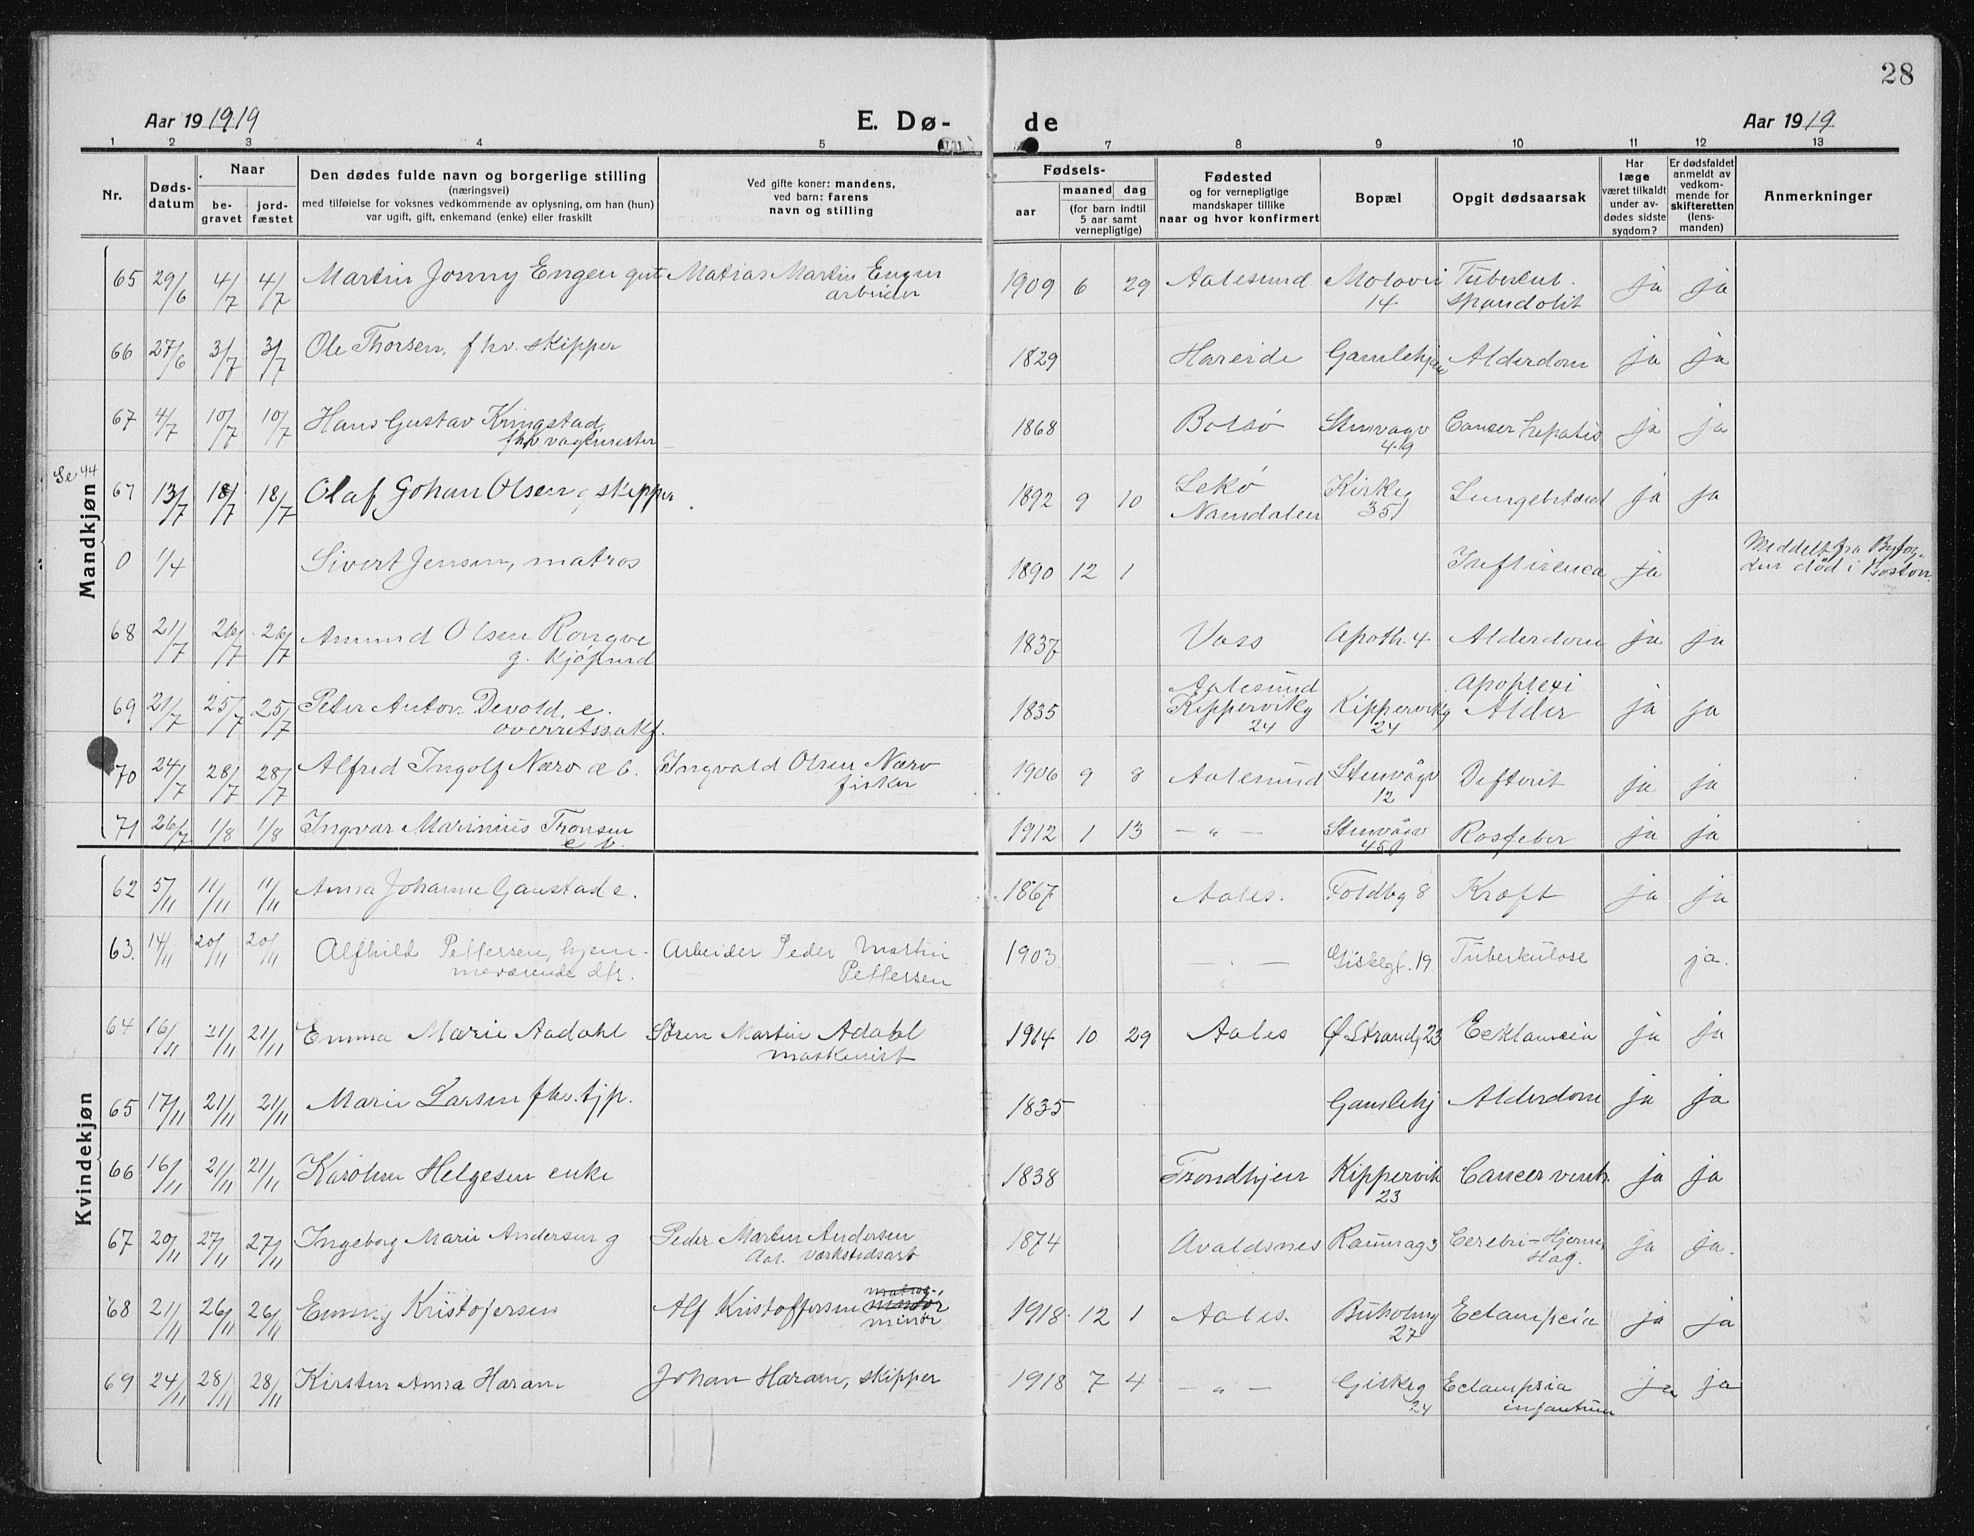 28
Aar 19 1919
E. Dø-
de
Aar 1919
1 2 3 4 5 7 8 9 10 11 12 13
Nr.
Døds-
datum
Naar
be-
gravet
jord-
fæstet
Den dødes fulde navn og borgerlige stilling
(næringsvei)
med tilføielse for voksnes vedkommende av oplysning, om han (hun)
var ugift, gift, enkemand (enke) eller fraskilt
Ved gifte koner: mandens,
ved barn: farens
navn og stilling
Fødsels-
aar
maaned dag
(for barn indtil
5 aar samt
vernepligtige)
Fødested
og for vernepligtige
mandskaper tillike
naar og hvor konfirmert
Bopæl
Opgit dødsaarsak
Har
læge
været tilkaldt
under av-
dødes sidste
sygdom?
Er dødsfaldet
anmeldt av
vedkom-
mende for
skifteretten
(lens-
manden)
Anmerkninger
Mandkjøn
65 29/6 4/7 4/7 Martin Jonny Engen gut Matias Martin Engen 1909 6 29 Aalesund Tubercul. ja ja
arbeider 14
66 27/6 3/7 3/7 Ole Thorsen, fhv. skipper 1829 Hareide Gamlehjem Alderdom ja ja
67 4/7 10/7 10/7 Hans Gustav Kringstad, 1868 Bolsø Cancer hepatis ja ja
fhv vagtmester 49
Se 44
67 13/7 18/7 18/7 Olaf Johan Olsen g skipper 1892 9 10 Lekø Kirkeg ja ja
Namdalen 35
0 1/4 Sivert Jensen, matros 1890 12 1 ja Meddelt fra Byfog-
den død i Boston
68 21/7 26/7 26/7 Amund Olsen Rongve 1837 Voss Apoth. 4 Alderdom ja ja
g. kjøpmd
69 21/7 25/7 25/7 Peter Anton Devold, e. 1835 Aalesund Kippervikg Apoplexi ja ja
overretssakf. Kippervikg 24 24 Alder
70 24/7 28/7 28/7 Alfred Ingolf Nærø Ingvald Olsen Nærø 1906 9 8 Aalesund Stenvågv Difterit ja ja
fisker 12
71 26/7 1/8 1/8 Ingvar Marinius Tronsen 1912 1 13 — " — Stenvågv Rosfeber ja ja
Kvindekjøn
62 5/11 11/11 11/11 Anna Johanne Gaustad e. 1867 Aales. 8 Kræft ja ja
63. 14/11 20/11 20/11 Alfhild Pettersen, hjem- Arbeider Peder Martin 1903 — " — Giskegt. 19 Tuberkulose ja.
meværende dtr. Pettersen
64 16/11 21/11 21/11 Emma Marie Aadahl Søren Martin Adahl 1914 10 29 Aales Ø Strandg 23 ja ja
maskinist
65 17/11 21/11 21/11 Marie Larsen fhv. tjp. 1835 Gamlehj Alderdom ja ja
66 16/11 21/11 21/11 Karoline Helgesen enke 1838 Trondhjem Kippervik Cancer ventr. ja ja
23
67 20/11 27/11 27/11 Ingeborg Marie Andersen g Peder Martin Andersen 1874 Avaldsnes Raumag 3 ja ja.
værkstedsarb
68 21/11 26/11 26/11 Emmy Kristofersen Alf Kristoffersen matros 1918 12 1 Aales. Eclampsia ja ja
minør 27
69 24/11 28/11 28/11 Kirsten Anna Haram Johan Haram, skipper 1918 7 4 — " — Giskeg Eclampsia ja ja
24 infantum